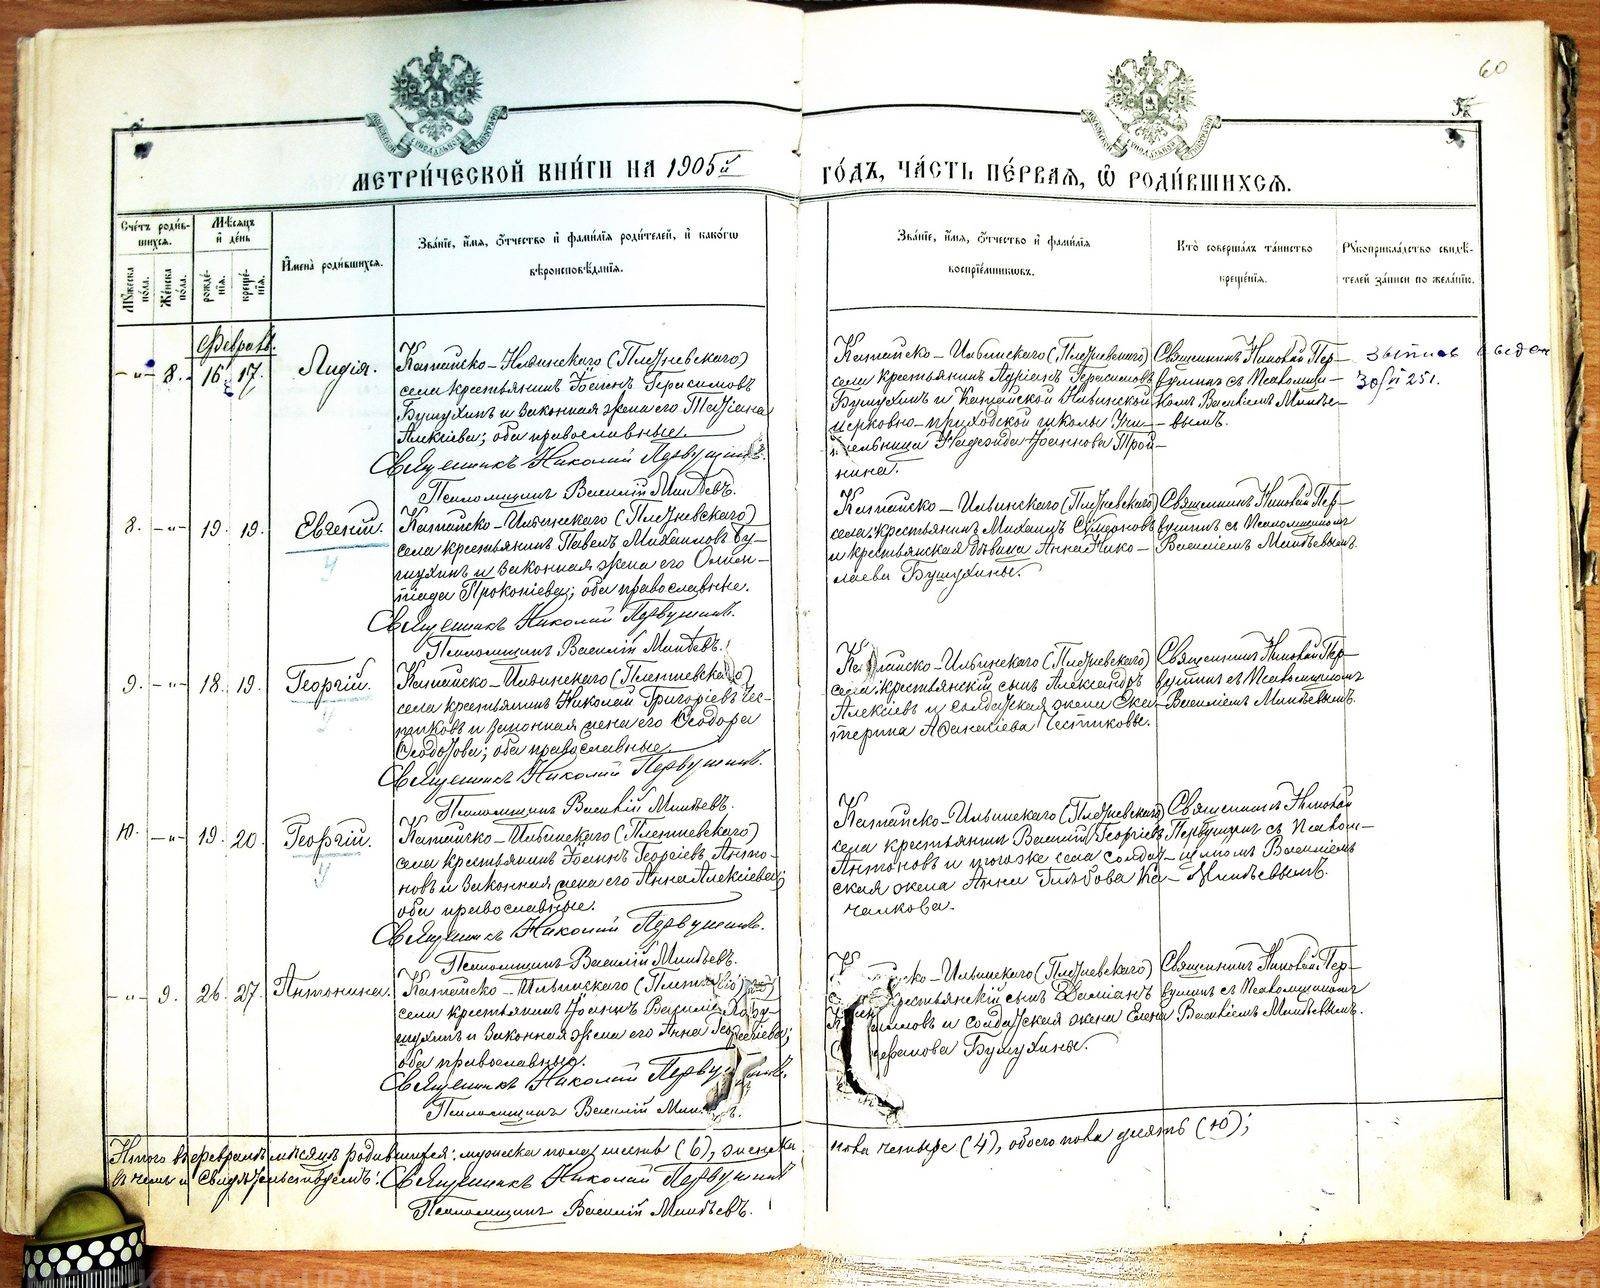 60
МЕТРИ́ЧЕСКОЙ КНИ́ГИ НА 1905й
ГО́ДЪ, ЧА́СТЬ ПЕ́РВАЯ, Ѡ РОДИ́ВШИХСЯ.
Сче́тъ роди́в-
шихся.
Мѣ́сяцъ
и де́нь
Му́жеска по́ла.
Же́нска по́ла.
рожде́-
нія.
креще́-
нія.
И́мена роди́вшихся.
Зва́ніе, и́мя, о́тчество и фами́лія роди́телей, и како́гѡ
вѣроисповѣ́данія.
Зва́ніе, и́мя, о́тчество и фами́лія
воспріе́мниковъ.
Кто̀ соверша́лъ та́инство
креще́нія.
Рукоприкла́дство свидѣ́-
телей за́писи по жела́нію.
Февраль.
-"- 8. 16 17. Лидія.
Катайско-Ильинскаго (Плетневскаго)
села крестьянинъ Іоаннъ Герасимовъ
Бушухинъ и законная жена его Татіана
Алексіева; оба православные.
Священникъ Николай Первушинъ.
Псаломщикъ Василій Минѣевъ.
Катайско-Ильинскаго (Плетневскаго)
села крестьянинъ Адріанъ Герасимовъ
Бушухинъ и Катайской Ильинской
церковно-приходской школы Учи-
тельница Надежда Іоаннова Трой-
нина.
Священникъ Николай Пер-
вушинъ съ Псаломщи-
комъ Василіемъ Минѣе-
вымъ.
Выписъ выдан
30/VI 251.
8. -"- 19. 19. Евгеній.
Катайско-Ильинскаго (Плетневскаго)
села крестьянинъ Павелъ Михаиловъ Бу-
шухинъ и законная жена его Олим-
піада Прокопіева; оба православные.
Священникъ Николай Первушинъ.
Псаломщикъ Василій Минѣевъ.
Катайско-Ильинскаго (Плетневскаго)
села: крестьянинъ Михаилъ Сумеоновъ
и крестьянская дѣвица Анна Нико-
лаева Бушухины.
Священникъ Николай Пер-
вушинъ съ Псаломщикомъ
Василіемъ Минѣевымъ.
9. -"- 18. 19. Георгій.
Катайско-Ильинскаго (Плетневскаго)
села крестьянинъ Николай Григоріевъ Чес-
тиковъ и законная жена его Ѳеодора
Ѳеодотова; оба православные.
Священникъ Николай Первушинъ.
Псаломщикъ Василій Минѣевъ.
Катайско-Ильинскаго (Плетневскаго)
села: крестьянскій сынъ Александръ
Алексіевъ и солдатская жена Ека-
терина Аѳанасіева Честиковы.
Священникъ Николай Пер-
вушинъ съ Псаломщикомъ
Василіемъ Минѣевымъ.
10. -"- 19. 20. Георгій.
Катайско-Ильинскаго (Плетневскаго)
села крестьянинъ Іоаннъ Георгіевъ Анто-
новъ и законная жена его Анна Алексіева;
оба православные.
Священникъ Николай Первушинъ.
Псаломщикъ Василій Минѣевъ.
Катайско-Ильинскаго (Плетневскаго)
села крестьянинъ Василій Георгіевъ
Антоновъ и того же села солдат-
ская жена Анна Глѣбова Ка-
чалкова.
Священникъ Николай
Первушинъ съ Псалом-
щикомъ Василіемъ
Минѣевымъ.
-"- 9. 26. 27. Антонина.
Катайско-Ильинскаго
села крестьянинъ Іоаннъ Бу-
шухинъ и законная жена его Анна Георгіева;
оба православные.
Священникъ Николай Первушинъ.
Псаломщикъ Василій
-Ильинскаго (Плетневскаго)
крестьянскій сынъ Даміанъ
и солдатская жена Елена
Бушухины.
Священникъ Николай Пер-
вушинъ съ Псаломщикомъ
Василіемъ Минѣевымъ.
Итого въ февралѣ мѣсяцѣ родившихся: мужеска пола шесть (6), женска
пола четыре (4), обоего пола десять (10);
въ чемъ и свидѣтельствуемъ: Священникъ Николай Первушинъ
Псаломщикъ Василій Минѣевъ.